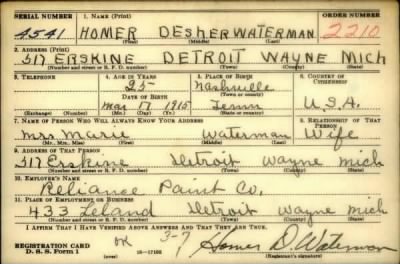 SERIAL NUMBER 1. NAME (Print) ORDER NUMBER
4541 HOMER DESHER WATERMAN 2210
(First) (Middle) (Last)
2. ADDRESS (Print)
517 ERSKINE DETROIT WAYNE MICH
(Number and street or R. F. D. number) (Town) (County) (State)
3. TELEPHONE 4. AGE IN YEARS 5. PLACE OF BIRTH 6. COUNTRY OF CITIZENSHIP
25 Nashville
(Town or county)
DATE OF BIRTH
Mar 17 1915 Tenn U.S.A.
(Exchange) (Number) (Mo.) (Day) (Yr.) (State or country)
7. NAME OF PERSON WHO WILL ALWAYS KNOW YOUR ADDRESS 8. RELATIONSHIP OF THAT PERSON
Mrs Marie Waterman Wife
(Mr., Mrs., Miss) (First) (Middle) (Last)
9. ADDRESS OF THAT PERSON
517 Erskine Detroit Wayne Mich
(Number and street or R. F. D. number) (Town) (County) (State)
10. EMPLOYER'S NAME
Reliance Paint Co.
11. PLACE OF EMPLOYMENT OR BUSINESS
433 Leland Detroit Wayne Mich
(Number and street or R. F. D. number) (Town) (County) (State)
I AFFIRM THAT I HAVE VERIFIED ABOVE ANSWERS AND THAT THEY ARE TRUE.
REGISTRATION CARD OK 3-7 Homer D. Waterman
D. S. S. Form 1 (Registrant's signature)